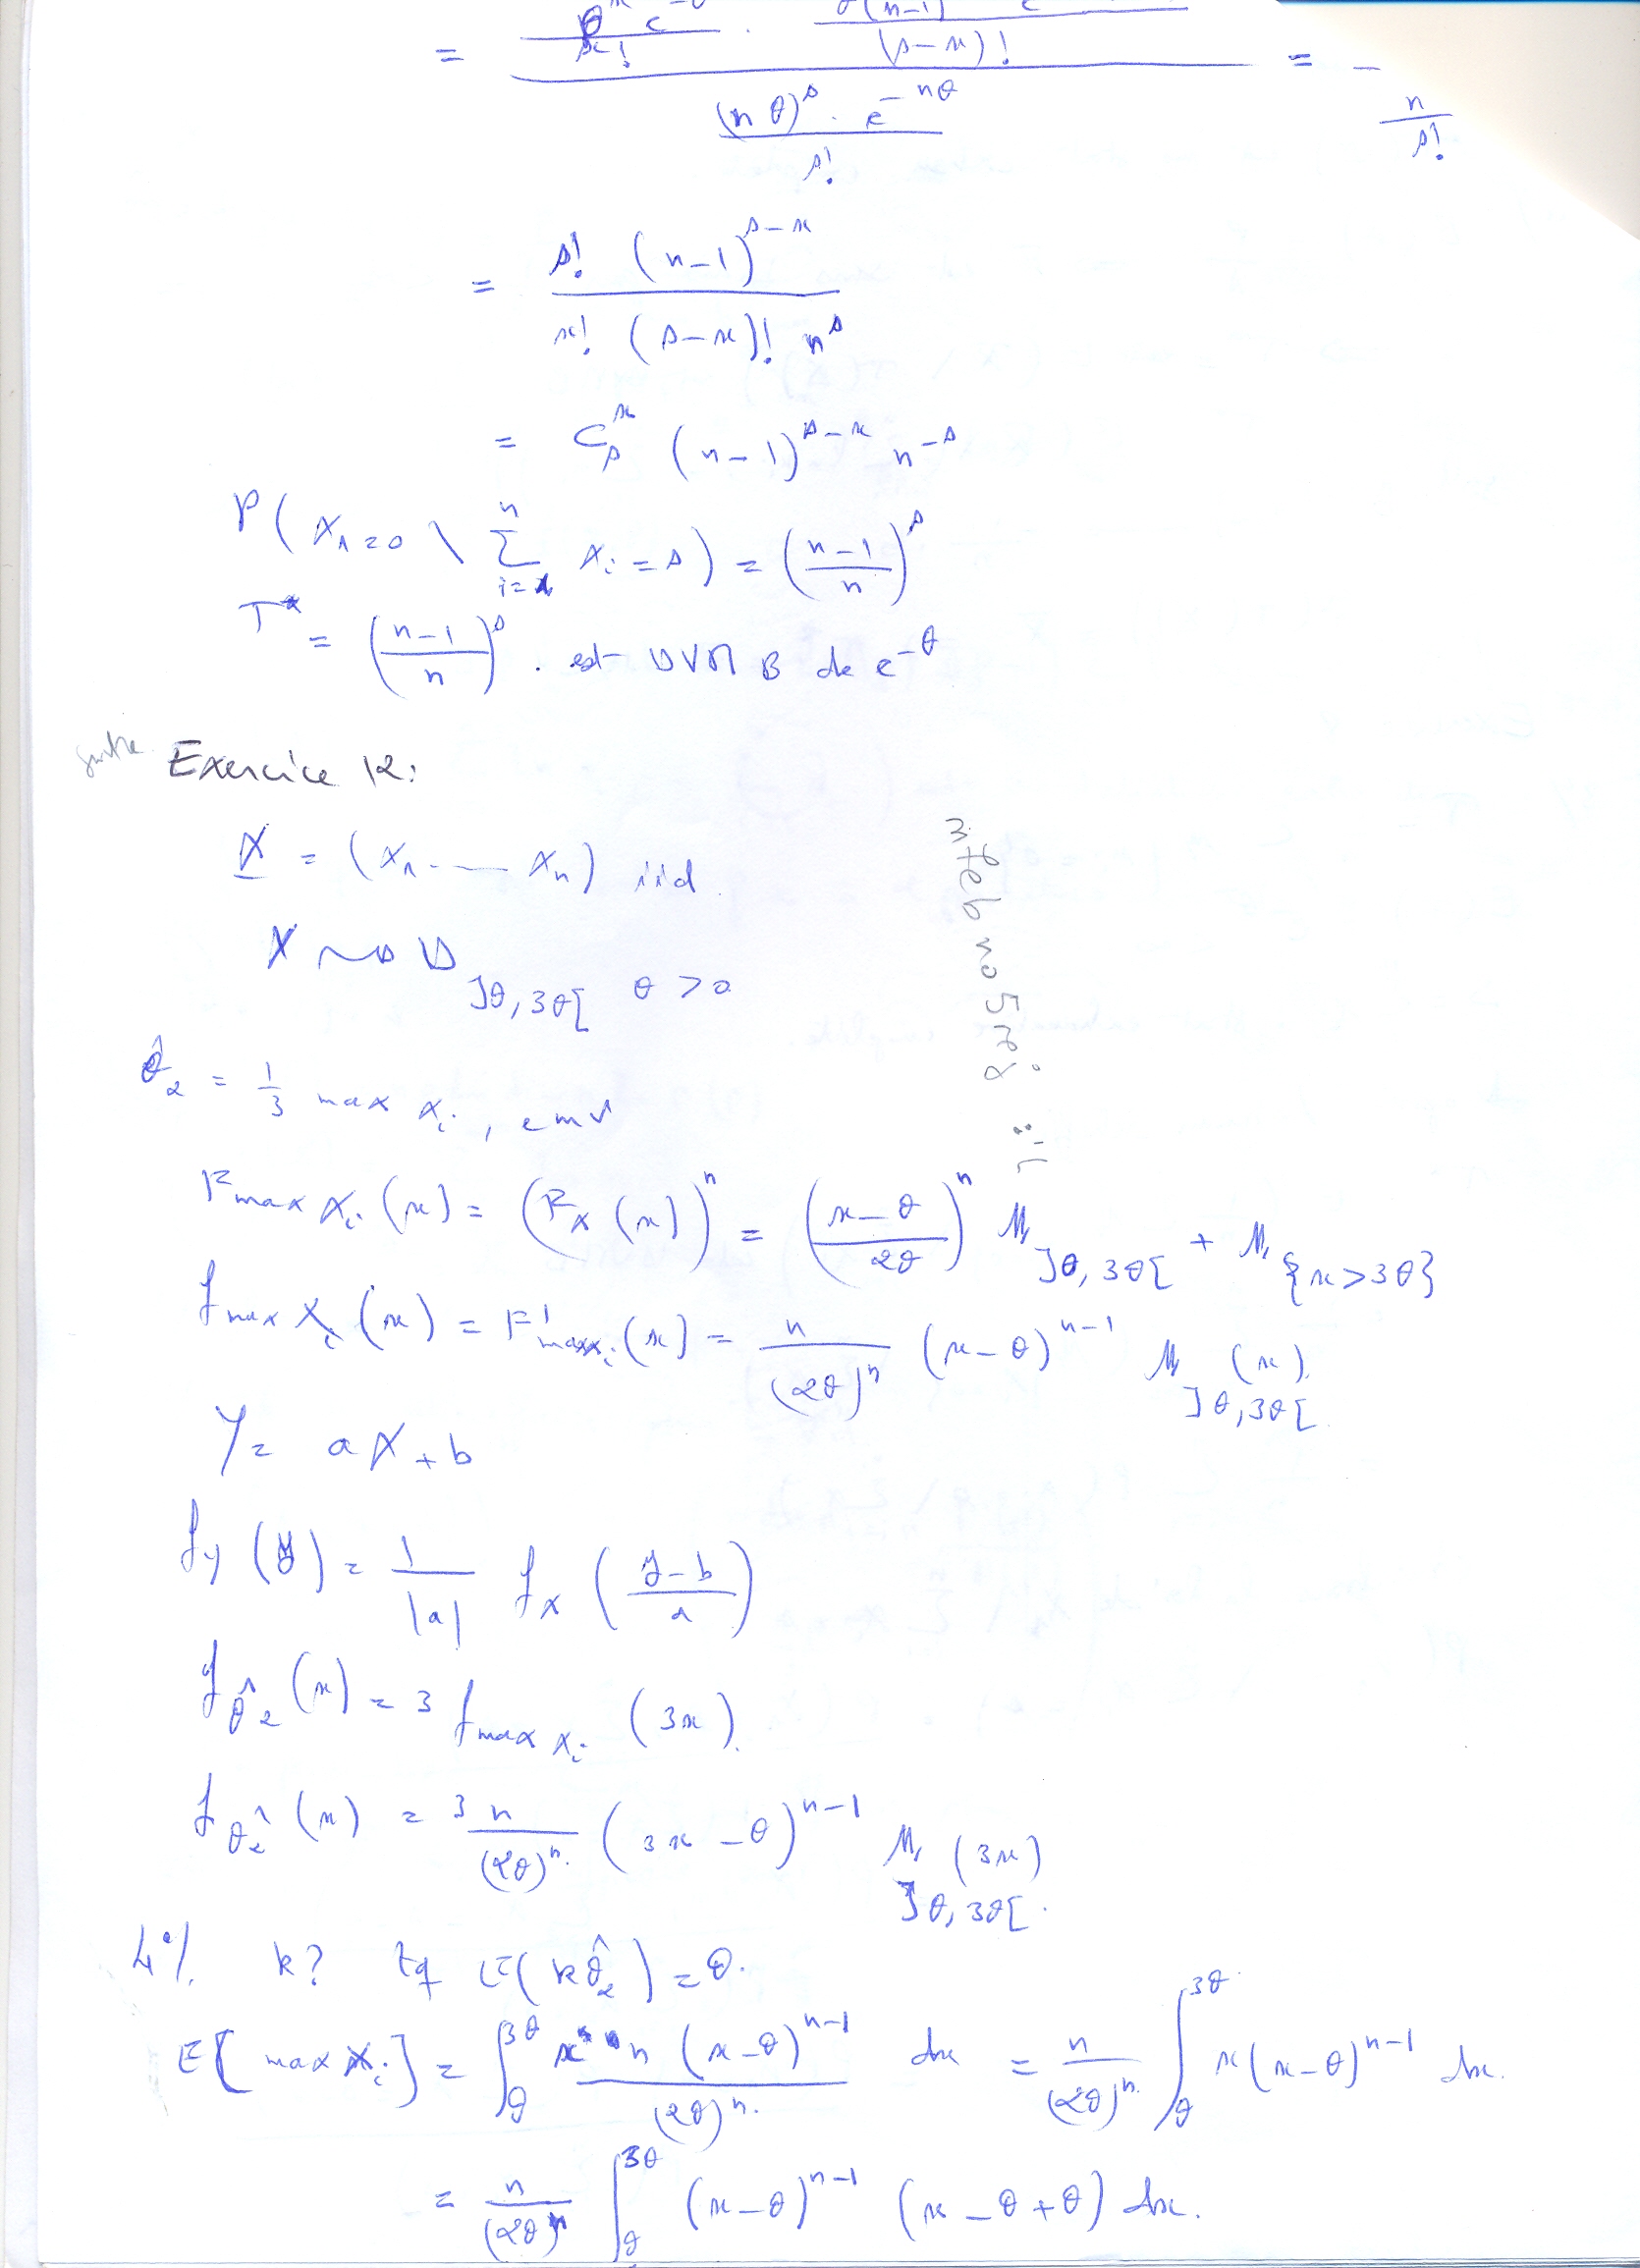 = \frac{\frac{θ^x e^{-θ}}{x!} · \frac{(n-1)}{(s-x)!}}{\frac{(nθ)^s · e^{-nθ}}{s!}} = \frac{}{\frac{n}{s!}}
= \frac{s! (n-1)^{s-x}}{x! (s-x)! n^s}
= C_s^x (n-1)^{s-x} n^{-s}
P(X_1=0 \ \sum_{i=1}^n X_i = s) = (\frac{n-1}{n})^s
T* = (\frac{n-1}{n})^s . est UVMB de e^{-θ}
suite Exercice 12:
X = (X_1 ---- X_n) iid
X ~> U_{]θ,3θ[} θ > 0
\hat{θ}_2 = \frac{1}{3} max X_i, emv
F_{max X_i}(x) = (F_X(x))^n = (\frac{x-θ}{2θ})^n 1_{]θ,3θ[} + 1_{\{x>3θ\}}
f_{max X_i}(x) = F'_{max X_i}(x) = \frac{n}{(2θ)^n} (x-θ)^{n-1} 1_{]θ,3θ[}(x).
Y = aX + b
f_Y(y) = \frac{1}{|a|} f_X(\frac{y-b}{a})
f_{\hat{θ}_2}(x) = 3 f_{max X_i}(3x).
f_{\hat{θ}_2}(x) = \frac{3n}{(2θ)^n} (3x-θ)^{n-1} 1_{]θ,3θ[}(3x)
4°/. k? tq E(k\hat{θ}_2) = θ.
E[max X_i] = \int_θ^{3θ} \frac{x n (x-θ)^{n-1}}{(2θ)^n} dx = \frac{n}{(2θ)^n} \int_θ^{3θ} x(x-θ)^{n-1} dx.
= \frac{n}{(2θ)^n} \int_θ^{3θ} (x-θ)^{n-1} (x-θ+θ) dx.